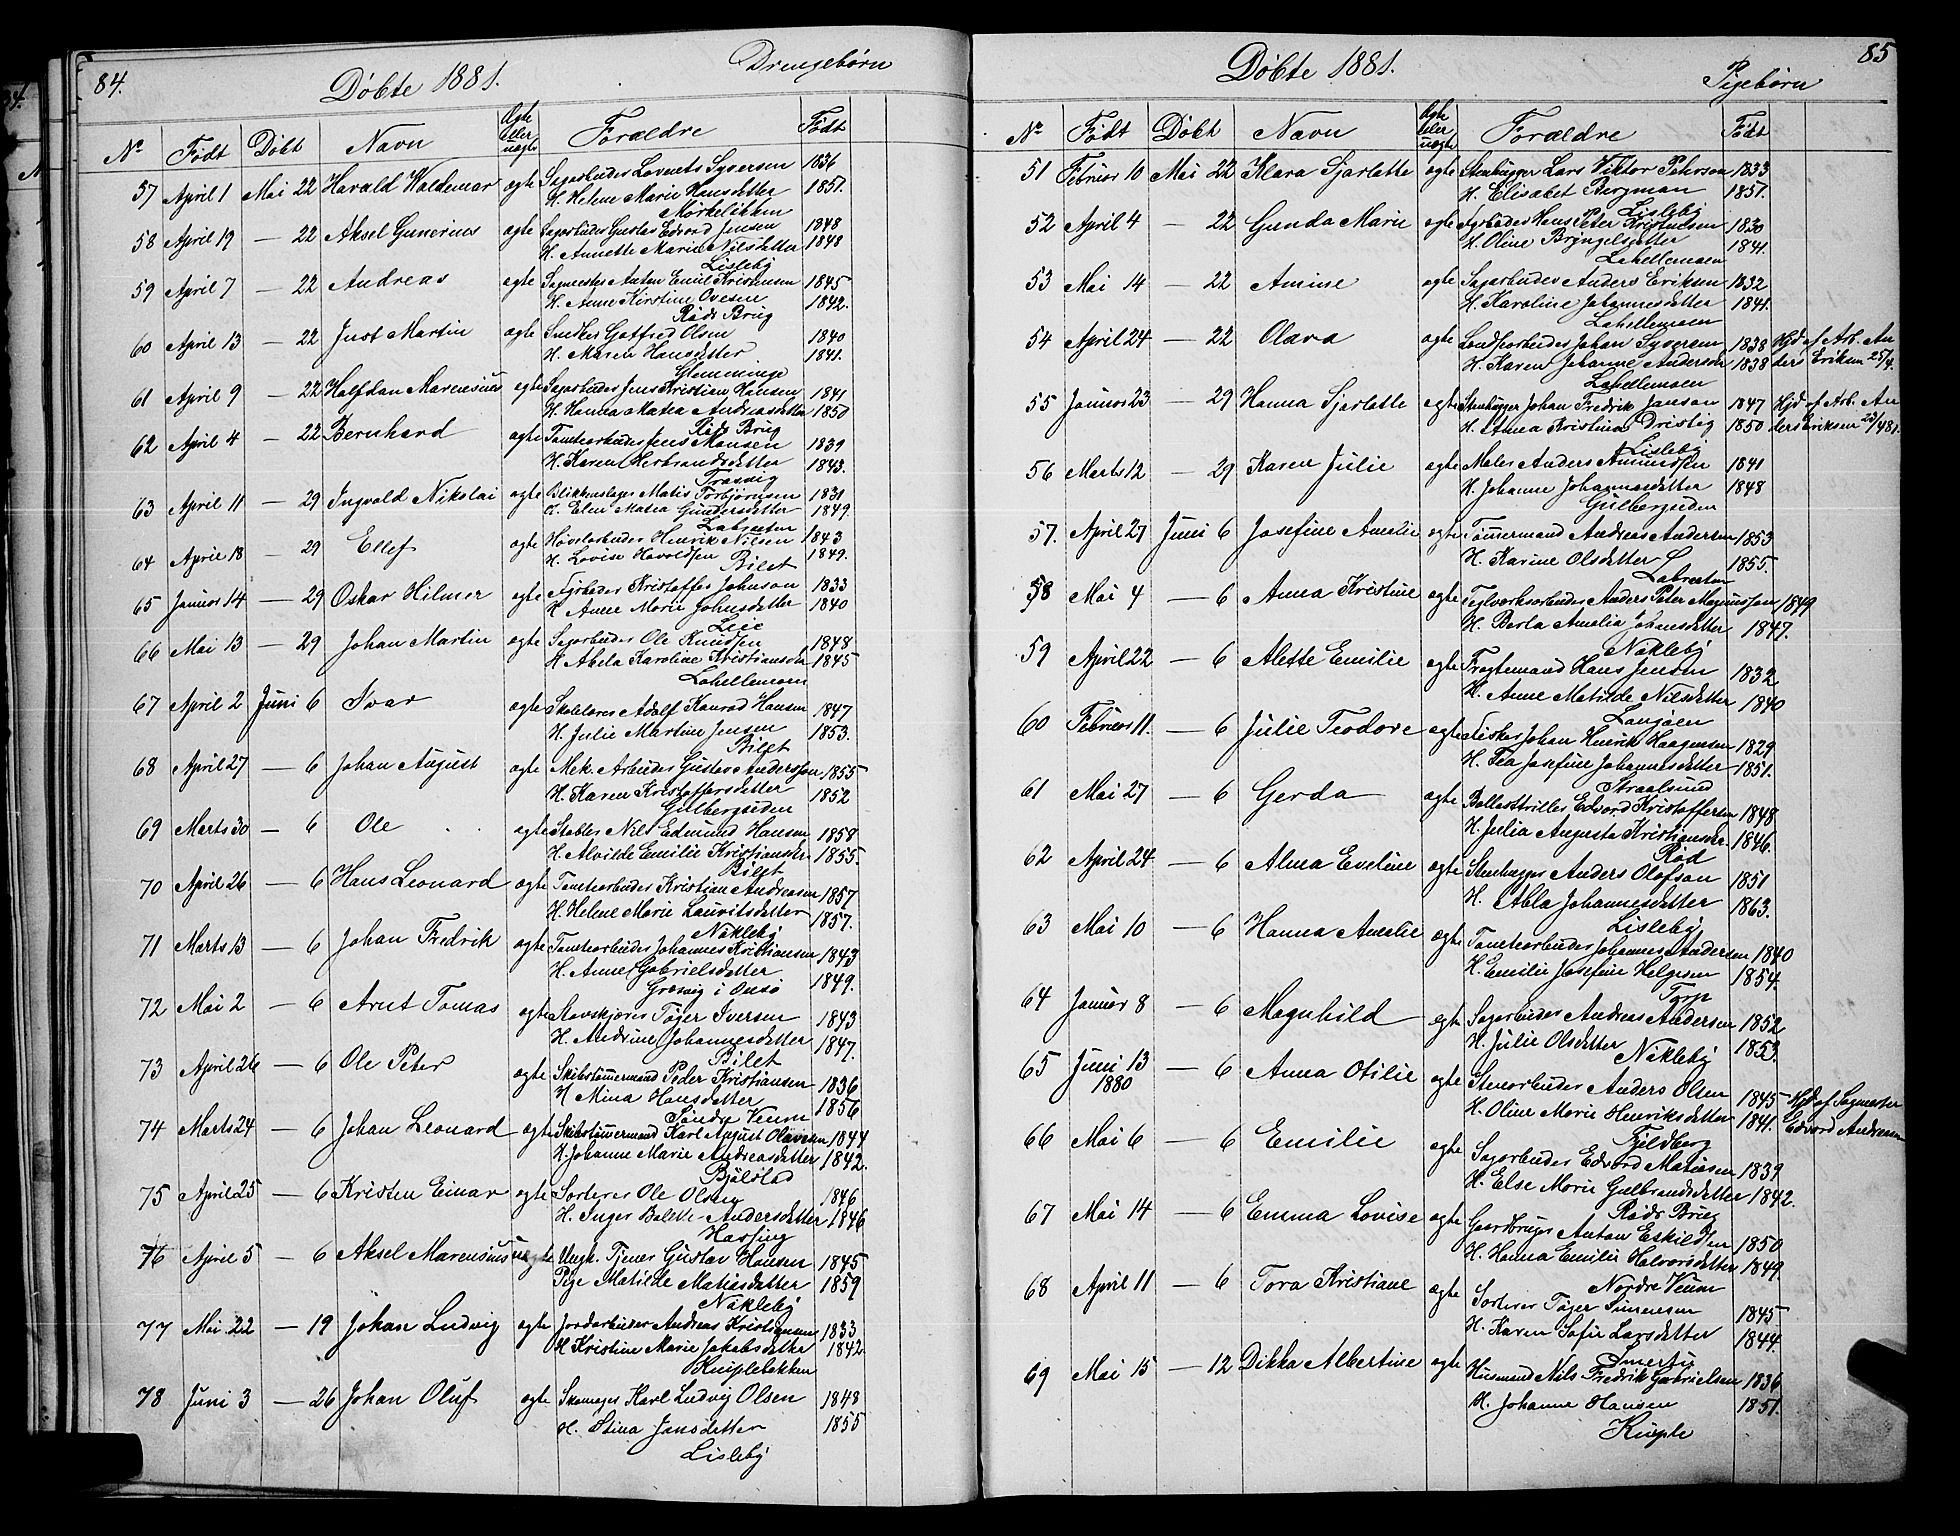 84.
Döbte 1881.
Drengebørn
Nº Født Döbt Navn Ægte eller uægte Forældre Født
57 April 1 Mai 22 Harald Waldemar ægte Sagarbeider Syversen 1836
H. Helene Marie Hansdatter 1851.
58 April 19 — 22 Aksel Gunerius ægte Sagarbeider Gustav Edvard Jensen 1848
H. Annette Marie Nilsdatter 1848
Lisleby
59 April 7 — 22 Andreas ægte Sagmester Anton Emil Kristiansen 1845
H. Anne Kirstine Ovesen 1842.
Råds Brug
60 April 13 — 22 Just Martin ægte Snedker Gotfred Olsen 1840
H. Maren Hansdatter 1841.
Glemminge
61 April 9 — 22 Halfdan Marensius ægte Sagarbeider Jens Kristian Hansen 1841
H. Hanna Matea Andreasdatter 1850
Råds Brug
62 April 4 — 22 Bernhard ægte Tomtearbeider Jens Hansen 1839
H. Karen Herbrandsdatter 1843.
Trosvig
63 April 11 — 29 Ingvald Nikolai ægte Blikkenslager Matis Torbjørnsen 1831
H. Elen Matea Gundersdatter 1849.
Labraaten
64 April 18 — 29 Ellef ægte Høvelarbeider Henrik Nilsen 1843
H. Lovise Havoldsen 1849.
Bilet
65 Januar 14 — 29 Oskar Hilmer ægte Fyrbøder Kristoffer Johnson 1833
H. Anne Marie Johnsdatter 1840
Leie
66 Mai 13 — 29 Johan Martin ægte Sagarbeider Ole Knudsen 1848
H. Abela Karoline Kristiansdtr 1845
Lahellemoen
67 April 2 Juni 6 Ivar ægte Skolelærer Adolf Konrad Hansen 1847
H. Julie Martine Jensen 1853.
Bilet
68 April 27 — 6 Johan August ægte Mek. Arbeider Gustav Anderssen 1855
H. Karen Kristoffersdatter 1852
Gulbergsiden
69 Marts 30 — 6 Ole ægte Stabler Nils Edmund Hansen 1858
H. Alvilde Emilie Kristiansdtr 1855.
Bilet
70 April 26 — 6 Hans Leonard ægte Tomtearbeider Kristian Andreasen 1857
H. Helene Marie Lauritsdatter 1857.
Nökleby
71 Marts 13 — 6 Johan Fredrik ægte Tomtearbeider Johannes Kristiansen 1843
H. Anne Gabrielsdatter 1849.
Græsvig i Onsø
72 Mai 2 — 6 Arnt Tomas ægte Stavskjærer Töger Iversen 1843
H. Andrine Johannesdatter 1847.
Bilet
73 April 26 — 6 Ole Peter ægte Skibstömmermand Peder Kristiansen 1836
H Mina Hansdatter 1856
Söndre Veum
74 Marts 24 — 6 Johan Leonard ægte Skibstömmermand Karl August Olavesen 1844
H. Johanne Marie Andreasdatter 1842.
Bjölstad
75 April 25 — 6 Kristen Einar ægte Sorterer Ole Olsen 1846
H. Inger Bolette Andersdatter 1846
Hassing
76 April 5 — 6 Aksel Marensius uægte Ungk. Tjener Gustav Hansen 1845
Pige Matilde Matiasdatter 1859
Nökleby
77 Mai 22 — 19 Johan Ludvig ægte Jordarbeider Andreas Kristiansen 1833
H Kristine Marie Jakobsdatter 1842.
Kniplebakken
78 Juni 3 — 26 Johan Oluf ægte Skomager Karl Ludvig Olsen 1848
H. Stina Jansdatter 1855
Lisleby
85
Döbte 1881.
Pigebørn
Nº Født Döbt Navn Ægte eller uægte Forældre Født
51 Februar 10 Mai 22 Klara Sjarlotte ægte Stenhugger Lars Viktor Peterson 1833
H. Elisabet Bergman 1851.
Lisleby
52 April 4 — 22 Gunda Marie ægte Fyrbøder Hans Peter Kristiansen 1830
H. Oline Bryngelsdatter 1841.
Lahellemoen
53 Mai 14 — 22 Amine ægte Sagarbeider Anders Eriksen 1832
H. Karoline Johannesdatter 1841.
Lahellemoen
54 April 24 — 22 Olava ægte Landarbeider Johan Syversen 1838 Hjd af Arb. An
H. Karen Johanne Andersdtr 1838 ders Eriksen 25/4.
Lahellemoen
55 Januar 23 — 29 Hanna Sjarlotte ægte Stenhugger Johan Fredrik Janson 1847 Hjd af Arb. An
H. Anna Kristina Dristig 1850 ders Eriksen 23/481.
Lisleby
56 Marts 12 — 29 Karen Julie ægte Maler Anders Amundsen 1841
H. Johanne Johannesdatter 1848
Gulbergsiden
57. April 27 Juni 6 Josefine Amalie ægte Tömmermand Andreas Andersen 1853
H. Karine Olsdatter 1855.
Labraaten
58 Mai 4 — 6 Anna Kristine ægte Teglverksarbeider Anders Peter Magnusson 1849
H. Berta Amelia Johansdatter 1847.
Nökleby
59 April 22 — 6 Alette Emilie ægte Fragtemand Hans Jensen 1832
H. Anne Matilde Nilsdatter 1840
Langöen
60 Februar 11. — 6 Julie Teodore ægte Fisker Johan Henrik Haagensen 1829
H. Tea Josefine Johannesdatter 1851.
Straalsund
61 Mai 27 — 6 Gerda ægte Ballasttriller Edvard Kristoffersen 1848
H. Julia Augusta Kristiansdtr. 1846.
Råd
62 April 24. — 6 Alma Eveline ægte Stenhugger Anders Olafson 1851
H. Abla Johannesdatter 1863.
Lisleby
63 Mai 10 — 6 Hanna Amalie ægte Tomtearbeider Johannes Andersen 1840
H. Emilie Josefine Helgesen 1854.
Torp
64 Januar 8 — 6 Magnhild ægte Sagarbeider Andreas Andersen 1852
H. Julie Olsdatter 1853.
Nökleby
65 Juni 13 — 6 Anna Otilie ægte Stenarbeider Anders Olsen 1845 Hjd af Sagmester
1880 H. Oline Marie Henriksdatter 1841. Edvard Andersen
Fjeldberg
66 Mai 6 — 6 Emilie ægte Sagarbeider Edvard Matiesen 1839
H. Else Marie Gulbrandsdatter 1842.
Råds Brug
67 Mai 14 — 6 Emma Lovise ægte Gaardbruger Anton Eskildsen 1850
H. Hanna Emilie Halvorsdatter 1849.
Nordre Veum
68 April 11 — 6 Tora Kristiane ægte Sorterer Töger Simensen 1845
H. Karen Sofie Larsdatter 1844.
Smertu
69 Mai 15 — 12 Dikka Albertine ægte Husmand Nils Fredrik Gabrielsen 1836
H. Johanne Hansen 1851.
Kniple